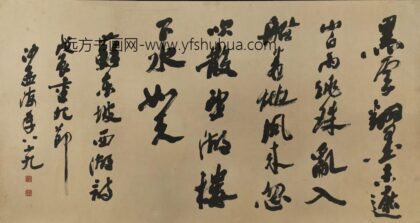 黑雲翻墨未遮
山白雨跳珠亂入
船卷地風來忽
吹散望湖樓
下水如天
蘇東坡西湖詩
戊辰重九節
沙孟海年八十九
远方书画网-www.yfshuhua.com